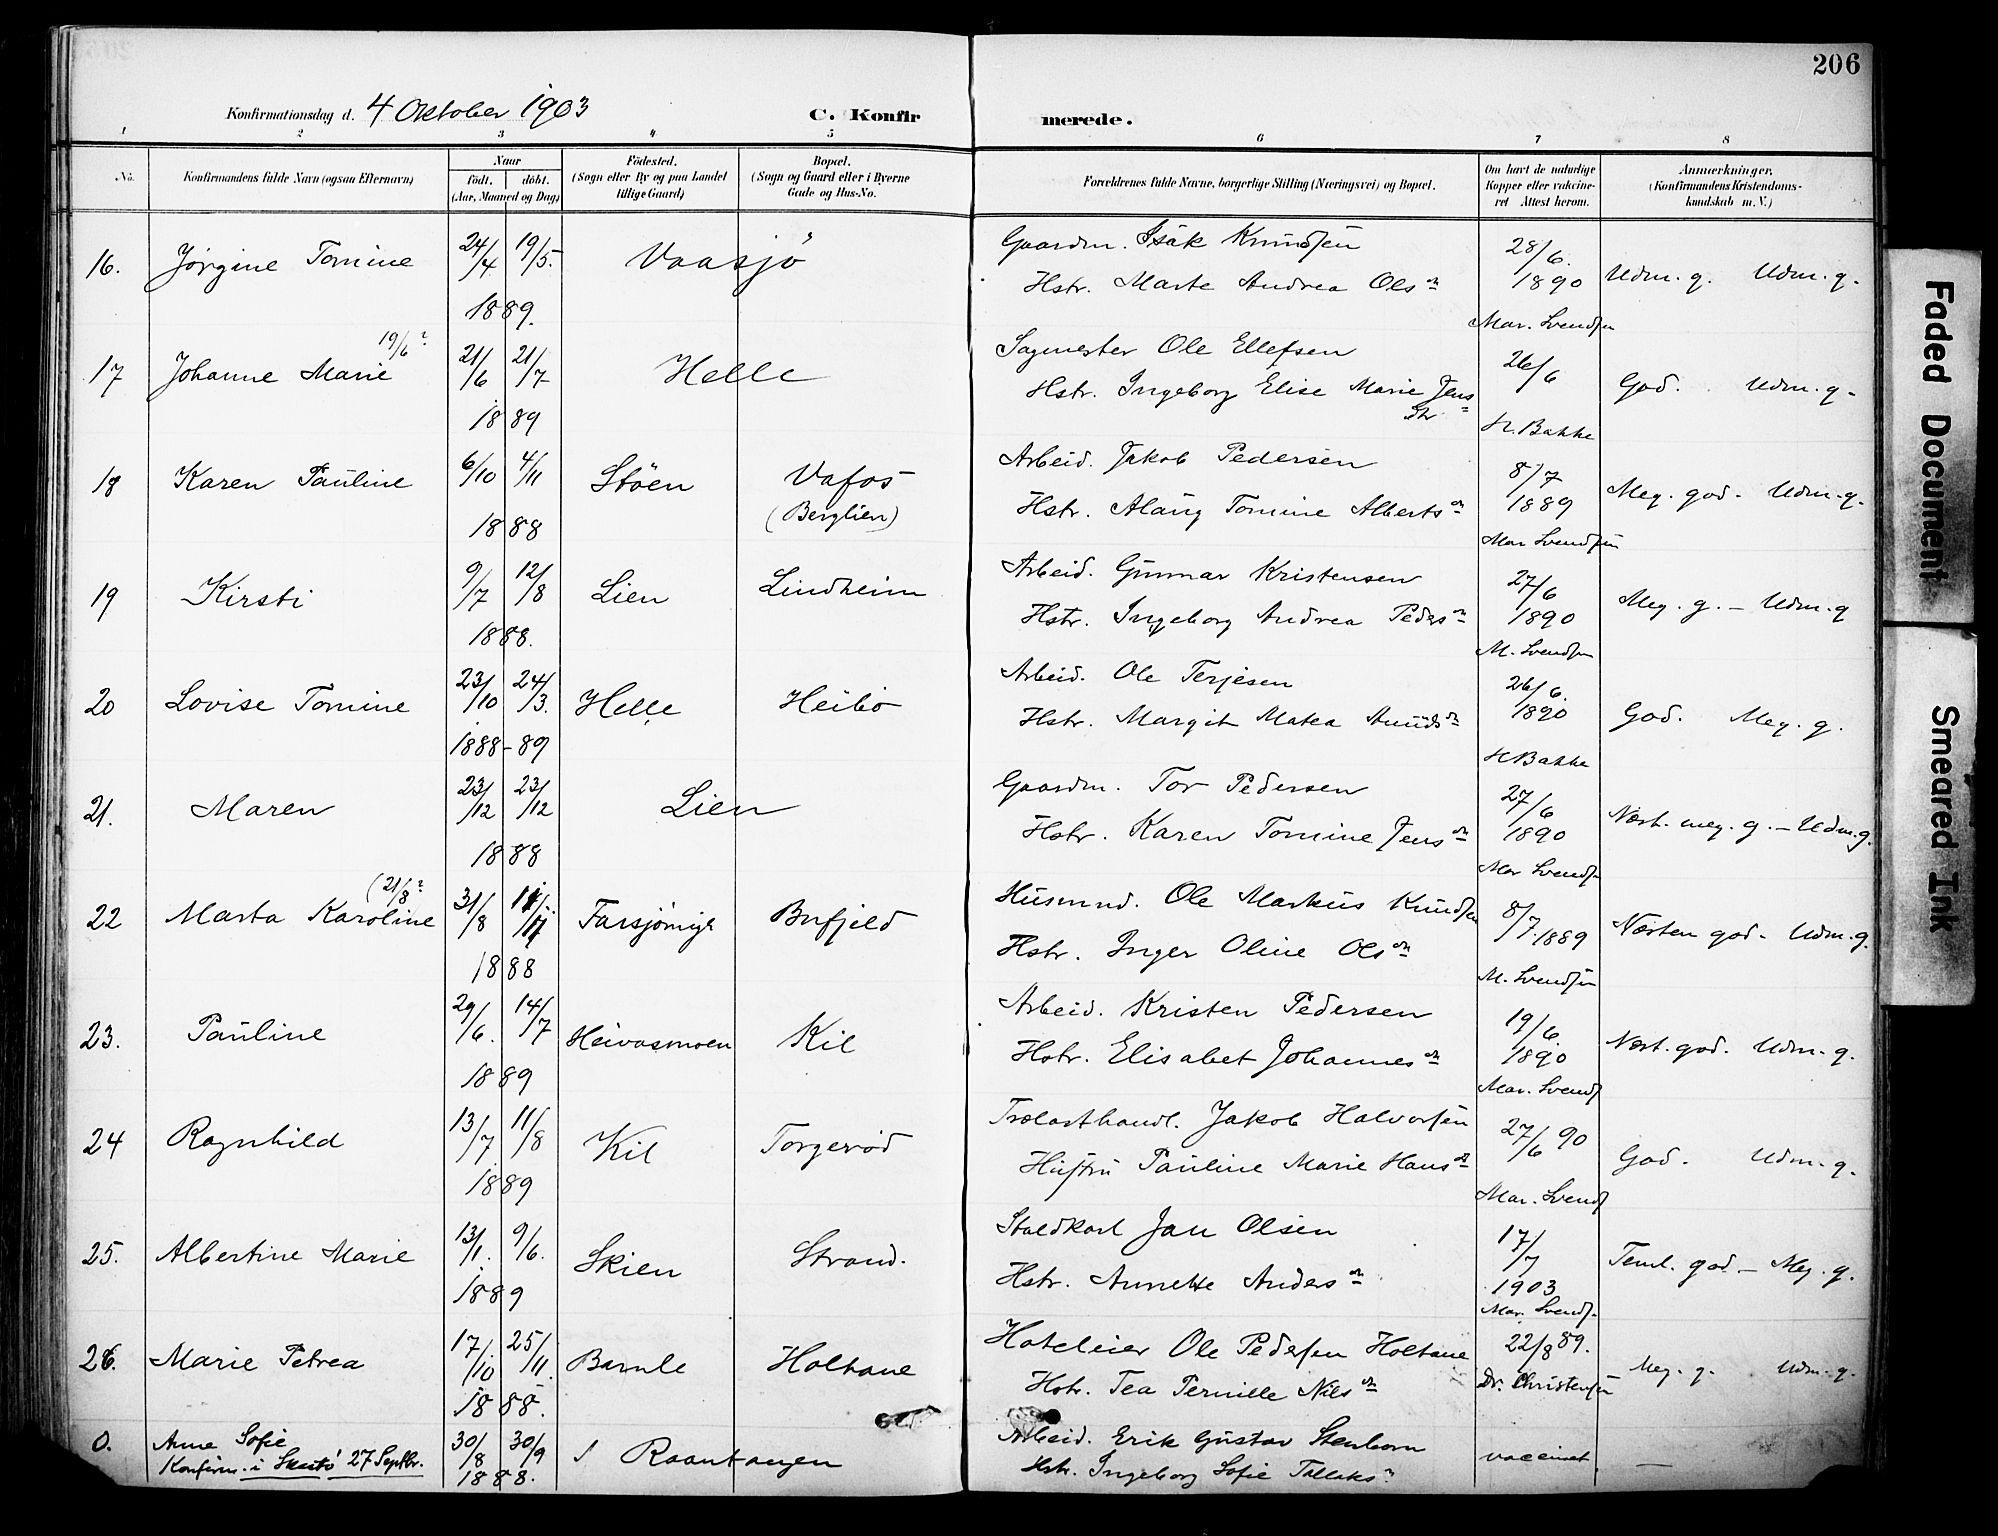 206
Konfirmationsdag d. 4 Oktober 1903 C. Konfirmerede.
1 2 3 4 5 6 7 8
No. Konfirmandens fulde Navn (ogsaa Efternavn) Naar födt. döbt. (Aar, Maaned og Dag) Födested. (Sogn eller By og paa Landet tillige Gaard) Bopæl. (Sogn og Gaard eller i Byerne Gade og Hus-No. Forældrenes fulde Navne, borgerlige Stilling (Næringsvei) og Bopæl. Om havt de naturlige Kopper eller vaccineret Attest herom. Anmærkninger. (Konfirmandens Kristendomskundskab m. V.)
16. Jørgine Tomine 24/4 19/5. 1889. Vaasjö Gaardm. Isak Knudsen
Hstr. Marte Andrea Olsdn 28/6. 1890 Mar. Svendsen Udm. g. Udm. g.
17 Johanne Marie 19/6? 21/6 21/7 1889 Helle Sagmester Ole Ellefsen
Hstr. Ingeborg Elise Marie Jensdtr 26/6 H. Bakke God. Udm. g.
18 Karen Pauline 6/10 4/11 1888 Stöen Vafos (Berglien) Arbeid. Jakob Pedersen
Hstr. Alaug Tomine Albertsdn 8/7 1889 Mar Svendsen Meg. god. Udm. g.
19 Kirsti 9/7 12/8 1888. Lien Lindheim Arbeid. Gunnar Kristensen
Hstr. Ingeborg Andrea Pedersdn 27/6 1890 M. Svendsen Meg. g. – Udm. g
20 Lovise Tomine 23/10 24/3. 1888-89 Helle Heibö Arbeid. Ole Terjesen
Hstr. Margit Matea Amundsdn 26/6. 1890 H Bakke God. Meg. g.
21. Maren 23/12 23/12 1888 Lien Gaardm. Tor Pedersen
Hstr. Karen Tomine Jensdn 27/6 1890 Mar Svends. Næst. meg. g. – Udm. g.
22 Marta Karoline (21/8? 31/8 11/11 1888 Farsjömyr Bufjeld Husmnd. Ole Markus Knudsen
Hstr. Inger Oline Olsdn 8/7. 1889 M. Svendsen Næsten god. Udm. g.
23. Pauline 29/6. 14/7 1889 Heivasmoen Kil Arbeid. Kristen Pedersen
Hstr. Elisabet Johannesdn 19/6. 1890 Mar. Svends Næst. god. Udm. g.
24 Ragnhild 13/7 11/8 1889 Kil Torgerød Trælasthandl. Jakob Halvorsen
Hustru Pauline Marie Hansdn 27/6 90 Mar. Svends God. Udm. g.
25. Albertine Marie 13/1. 9/6. 1889 Skien Strand. Staldkarl Jan Olsen
Hstr. Annette Andersdn 17/7 1903 Mar. Svends. Teml. god – Meg. g.
26. Marie Petrea 17/10 25/11. 1888. Bamle Holtane Hoteleier Ole Pedersen Holtane
Hstr. Tea Pernille Nilsdn 22/8 89. Dr. Christensen Meg. g. Udm. g.
0. Anne Sofie
Konfirm. i Skaatö 27 Septbr. 30/8 30/9 1888. Raantangen Arbeid. Erik Gustav Stenborn
Hstr. Ingeborg Sofie Tallaks. vaccinet –
Faded Document
Smeared Ink